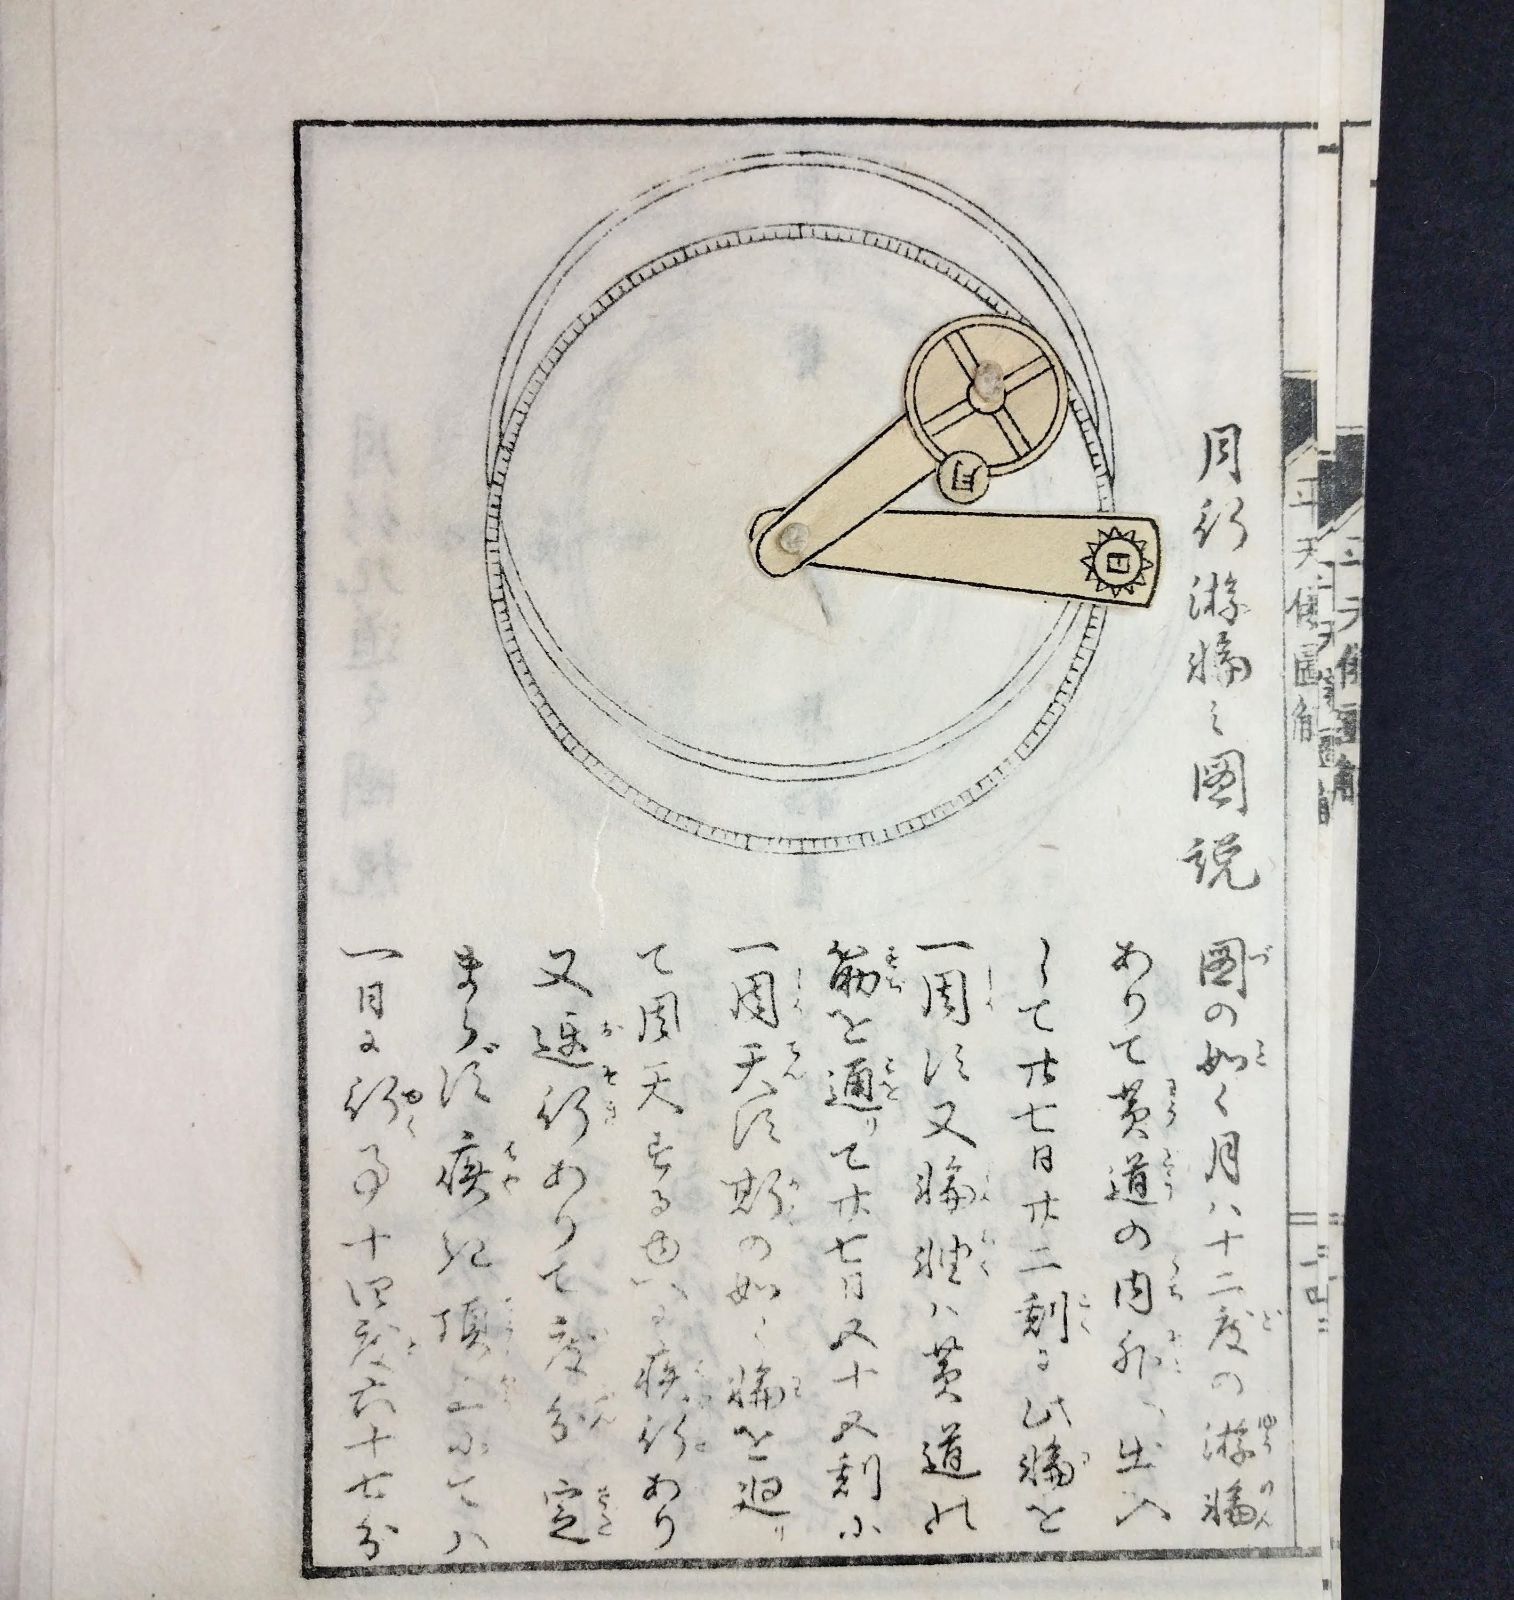 月行游輪之図説
図の如く月ハ十二度の游輪
ありて黄道の内外へ出入
して廿七日廿二刻に此輪を
一周す又輪軸ハ黄道の
筋を通りて廿七日又十又刻に
一周天す斯の如く輪を廻り
て周天する由ハに疾行あり
又遅行ありて度分定
まらず疾き頂上にてハ
一日に行事十四度六十七分
月
日
平天儀図解